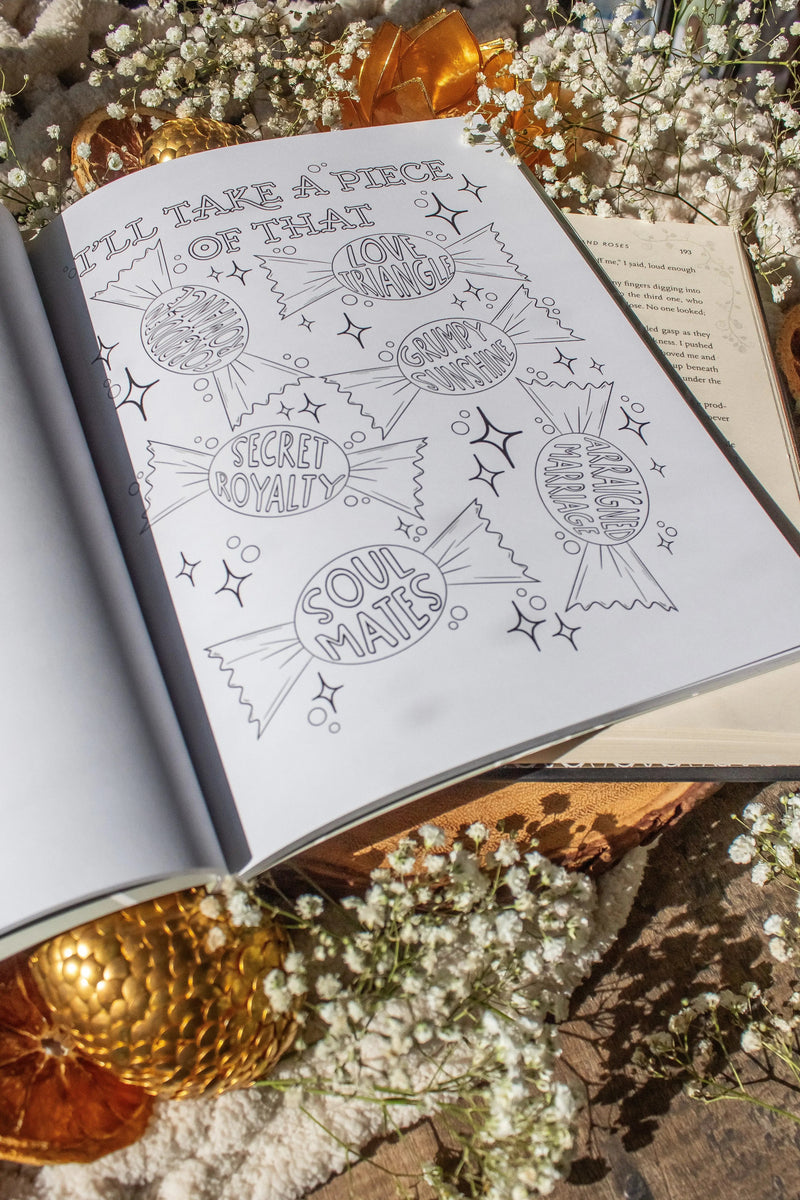 I'LL TAKE A PIECE
OF THAT
LOVE
TRIANGLE
GRUMPY
SUNSHINE
SECRET
ROYALTY
ARRAIGNED
MARRIAGE
SOUL
MATES
ND ROSES 193
me," I said, loud enough
my fingers digging into
to the third one, who
ose. No one looked,
led gasp as they
kness. I pushed
oved me and
up beneath
under the
prod-
oever